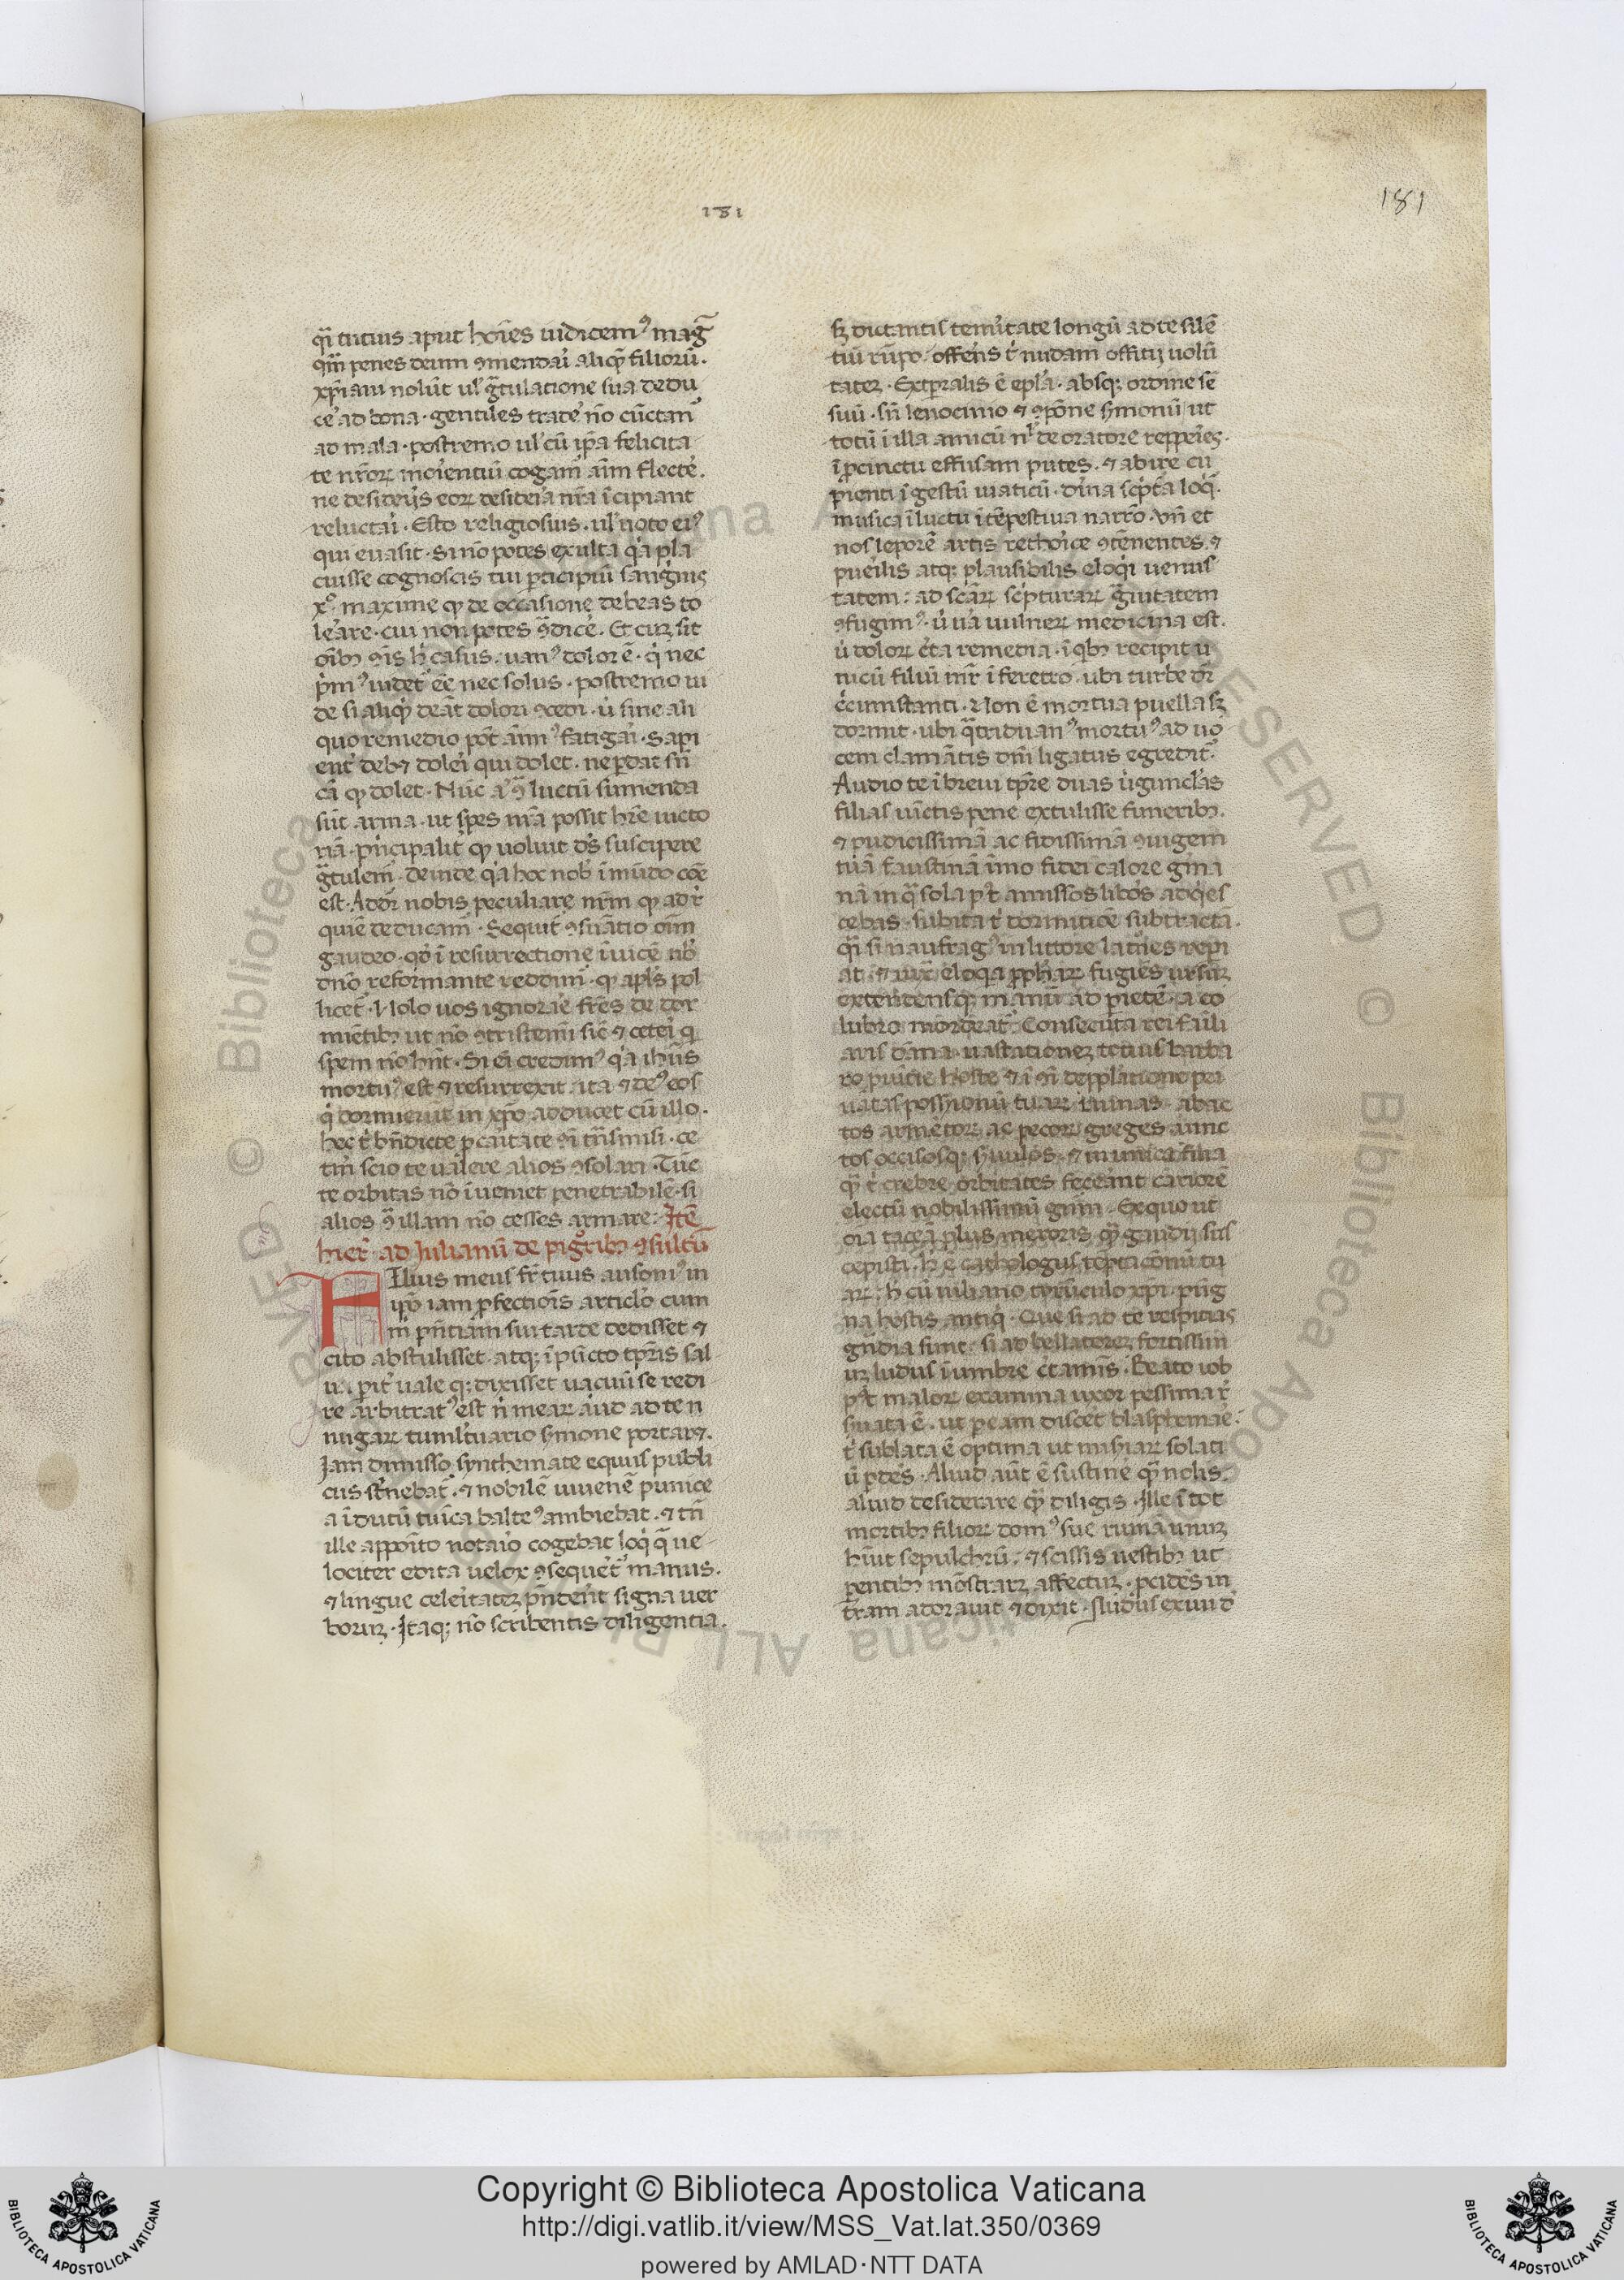 181
181
q̄i tutius aput ho͞ies iudicem᷒ mag̅
qm̄ penes deum ꝯmendari aliq̄ filiorū.
xp̄iani nolūt ul' gr̄tulatione sua dedu
ce͛ ad bona · gentiles trade͛ nō cūctant᷒
ad mala · postremo ul' cū ip̄a felicita
te nr̄oꝝ morientiū cogam᷒ aīm flecte͛.
ne desiderijs eoꝝ desideria nr̄a īcipiant
reluctari · Esto religiosius · ul' noto ei᷒
qui euasit · Si nō potes exulta q̇a pla
cuisse cognoscis tui p̱ticipiū sanguinis
xº maxime qꝫ de occasione debeas to
lerare · cui non potes ꝯ̄dice͛ · Et cuꝫ sit
oībꝫ ꝯ̄is h̓ casus · uan᷒ dolor ē · q̇ nec
p̓m᷒ uidet᷒ eē nec solus · postremo ui
de si aliq̇d deat dolori ꝯcedi · ū sine ali
quo remedio pōt aīm᷒ fatigari · Sapi
ent᷒ debꝫ doleri qui dolet · ne p̱dat sn̄
cā qꝫ dolet · Nūc a͛ ꝯ̄ luctū sumenda
sūt arma · ut spes nr̄a possit hr̄e uicto
riā · p̓ncipalit̓ qꝫ uoluit dꝰs suscipere
gr̄tulem᷒ · deinde q̇a hoc nob̓ ī mūdo cōe
est · Ador̄ nobis peculiare nr̄m qꝫ ad r͛
quiē deducam᷒ · Sequit᷒ ꝯsūatio oīm
gaudeo · qd̓ ī resurrectione īuicē nob̓
dn̄o reformante reddim᷒ · qꝫ apl̄s pol
licet᷒ · Nolo uos ignorare fr̄es de dor
miētibꝫ ut nō ꝯtristemi sic̄ ⁊ ceteri q̇
spem nō hn̄t · Si ei credim᷒ q̇a ih̄us
mortu᷒ est ⁊ resurrexit · ita ⁊ de᷒ eos
q̇ dormierūt in xp̄o adducet cū illo ·
hec t̓ bn̄dicte p̱ caritate m̄ tn̄smisi · ce
tm̄ scio te ualere alios ꝯsolari · Tūc
te orbitas nō īueniet penetrabilē · si
alios ꝯ̄ illam nō cesses armare · Itē
hier̄ ad Julianū de pigⁱoribꝫ ꝯsultū
Filius meus fr̄ tuus ausoni᷒ in
ip̄o iam p̱fectiōis articlo cum
m̄ pn̄tiam sui tarde dedisset ⁊
cito abstulisset · atqꝫ ī pūcto tp̄ris sal
u
p̱it̓ uale qꝫ dixisset uacuū se redi
re arbitrat᷒ est n̄ meaꝝ aīd ad te n
nugaꝝ tumltuario s̓mone portarꝫ.
Jam dimisso synthemate equus publi
cus st̓nebat᷒ · ⁊ nobilē iuuenē punice
a īdutū tunica balte᷒ ambiebat · ⁊ tn̄
ille appoīto notario cogebat loq̇ q̄ ue
lociter edita uelox ꝯsequeret᷒ manus.
⁊ lingue celeritatez pn̄dent signa uer
borꝝ · Itaqꝫ nō scribentis diligentia.
sꝫ dictantis temitate longū ad te silē
tiū rūpo · offēns t̓ nudam offitij uolū
tatez · Extp̱alis ē epl̄a · absqꝫ ordine sē
suū · sn̄ lenocinio ⁊ ꝯpōne s̓monū ut
totū ī illa amicū nl̓ de oratore rep̱peries.
ī p̱cinctu effusam putes · ⁊ abire cu
pienti īgestū uiaticū · Diuina scp̓ta loq̄.
musica ī luctu ītēpestiua narro · Vn̄ et
nos leporē artis rethorice ꝯtenentes ⁊
puerilis atqꝫ plausibilis eloq̇i uenus
tatem : ad scāꝝ sc̓pturaꝝ g̅uitatem
ꝯfugim᷒ · ū ua uulneꝝ medicina est.
ū doloꝝ c̓ta remedia · ī q̇bꝫ recipit u
nicū filiū mr̄ ī feretro · ubi turbe dr̄
c̓cumstanti · Non ē mortua puella sꝫ
dormit · ubi q̅triduan᷒ mortu᷒ ad uo
cem clamātis dn̄i ligatus egredit᷒.
Audio te ī breui tp̄re duas uirguncl̓as
filias uīctis pene extulisse funeribꝫ.
⁊ pudicissimā ac fidissimā ꝯiugem
tuā faustinā īmo fidei calore gmā
nā in q̄ sola p᷒t amissos lib̓os adq̇es
cebas · subita t̓ dormitiōe subtracta.
q̄i si naufrag᷒ in littore latrōes rep̱i
at · ⁊ iux̄ eloq̇a p̱ph̄aꝝ fugiēs ursuꝫ
extendensqꝫ manū ad pietē · a co
lubro mordeat᷒ · Consecuta rei famili
aris dāna · uastationez totius barba
ro p̱uīcie hoste ⁊ ī ꝯ̄i depp̱latione p̱i
uatas possionū tuaꝝ ruinas · abac
tos armētoꝝ ac pecoꝝ greges · uinc
tos occisosqꝫ s̓uulos · ⁊ in unica filia
qꝫ t̓ crebre orbitates fecerant cariorē
electū nobilissimū gn̄m · Ex quo ut
oīa tacea plus meroris qꝫ gaudii sus
cepisti · h̓ ē cathologus tēptatōnū tu
aꝝ · h̓ cū iuliano tyrūculo xp̄i · pug
na hostis antiq̇ · Que si ad te respicias
g̅ndia sunt · si ad bellatorez fortissim
uꝫ ludus ī umbre c̓tamīs · Beato iob
p᷒t maloꝝ examina uxor pessima r͛
s̓uata ē · ut p̱ eam disceret blasphemare.
t̓ sublata ē optima ut misiaꝝ solati
ū p̱deres · Aliud aūt ē sustine͛ qꝫ nolis.
aliud desiderare qꝫ diligis · Ille ī tot
mortibꝫ filioꝝ dom᷒ sue ruinā unuꝫ
hūit sepulchrū · ⁊ scissis uestibꝫ ut
pentibꝫ mōstraꝝ affectuꝫ · p̱cidēs in
tr̄am adorauit ⁊ dixit · Nudus exiui d̓
Copyright © Biblioteca Apostolica Vaticana
http://digi.vatlib.it/view/MSS_Vat.lat.350/0369
powered by AMLAD·NTT DATA